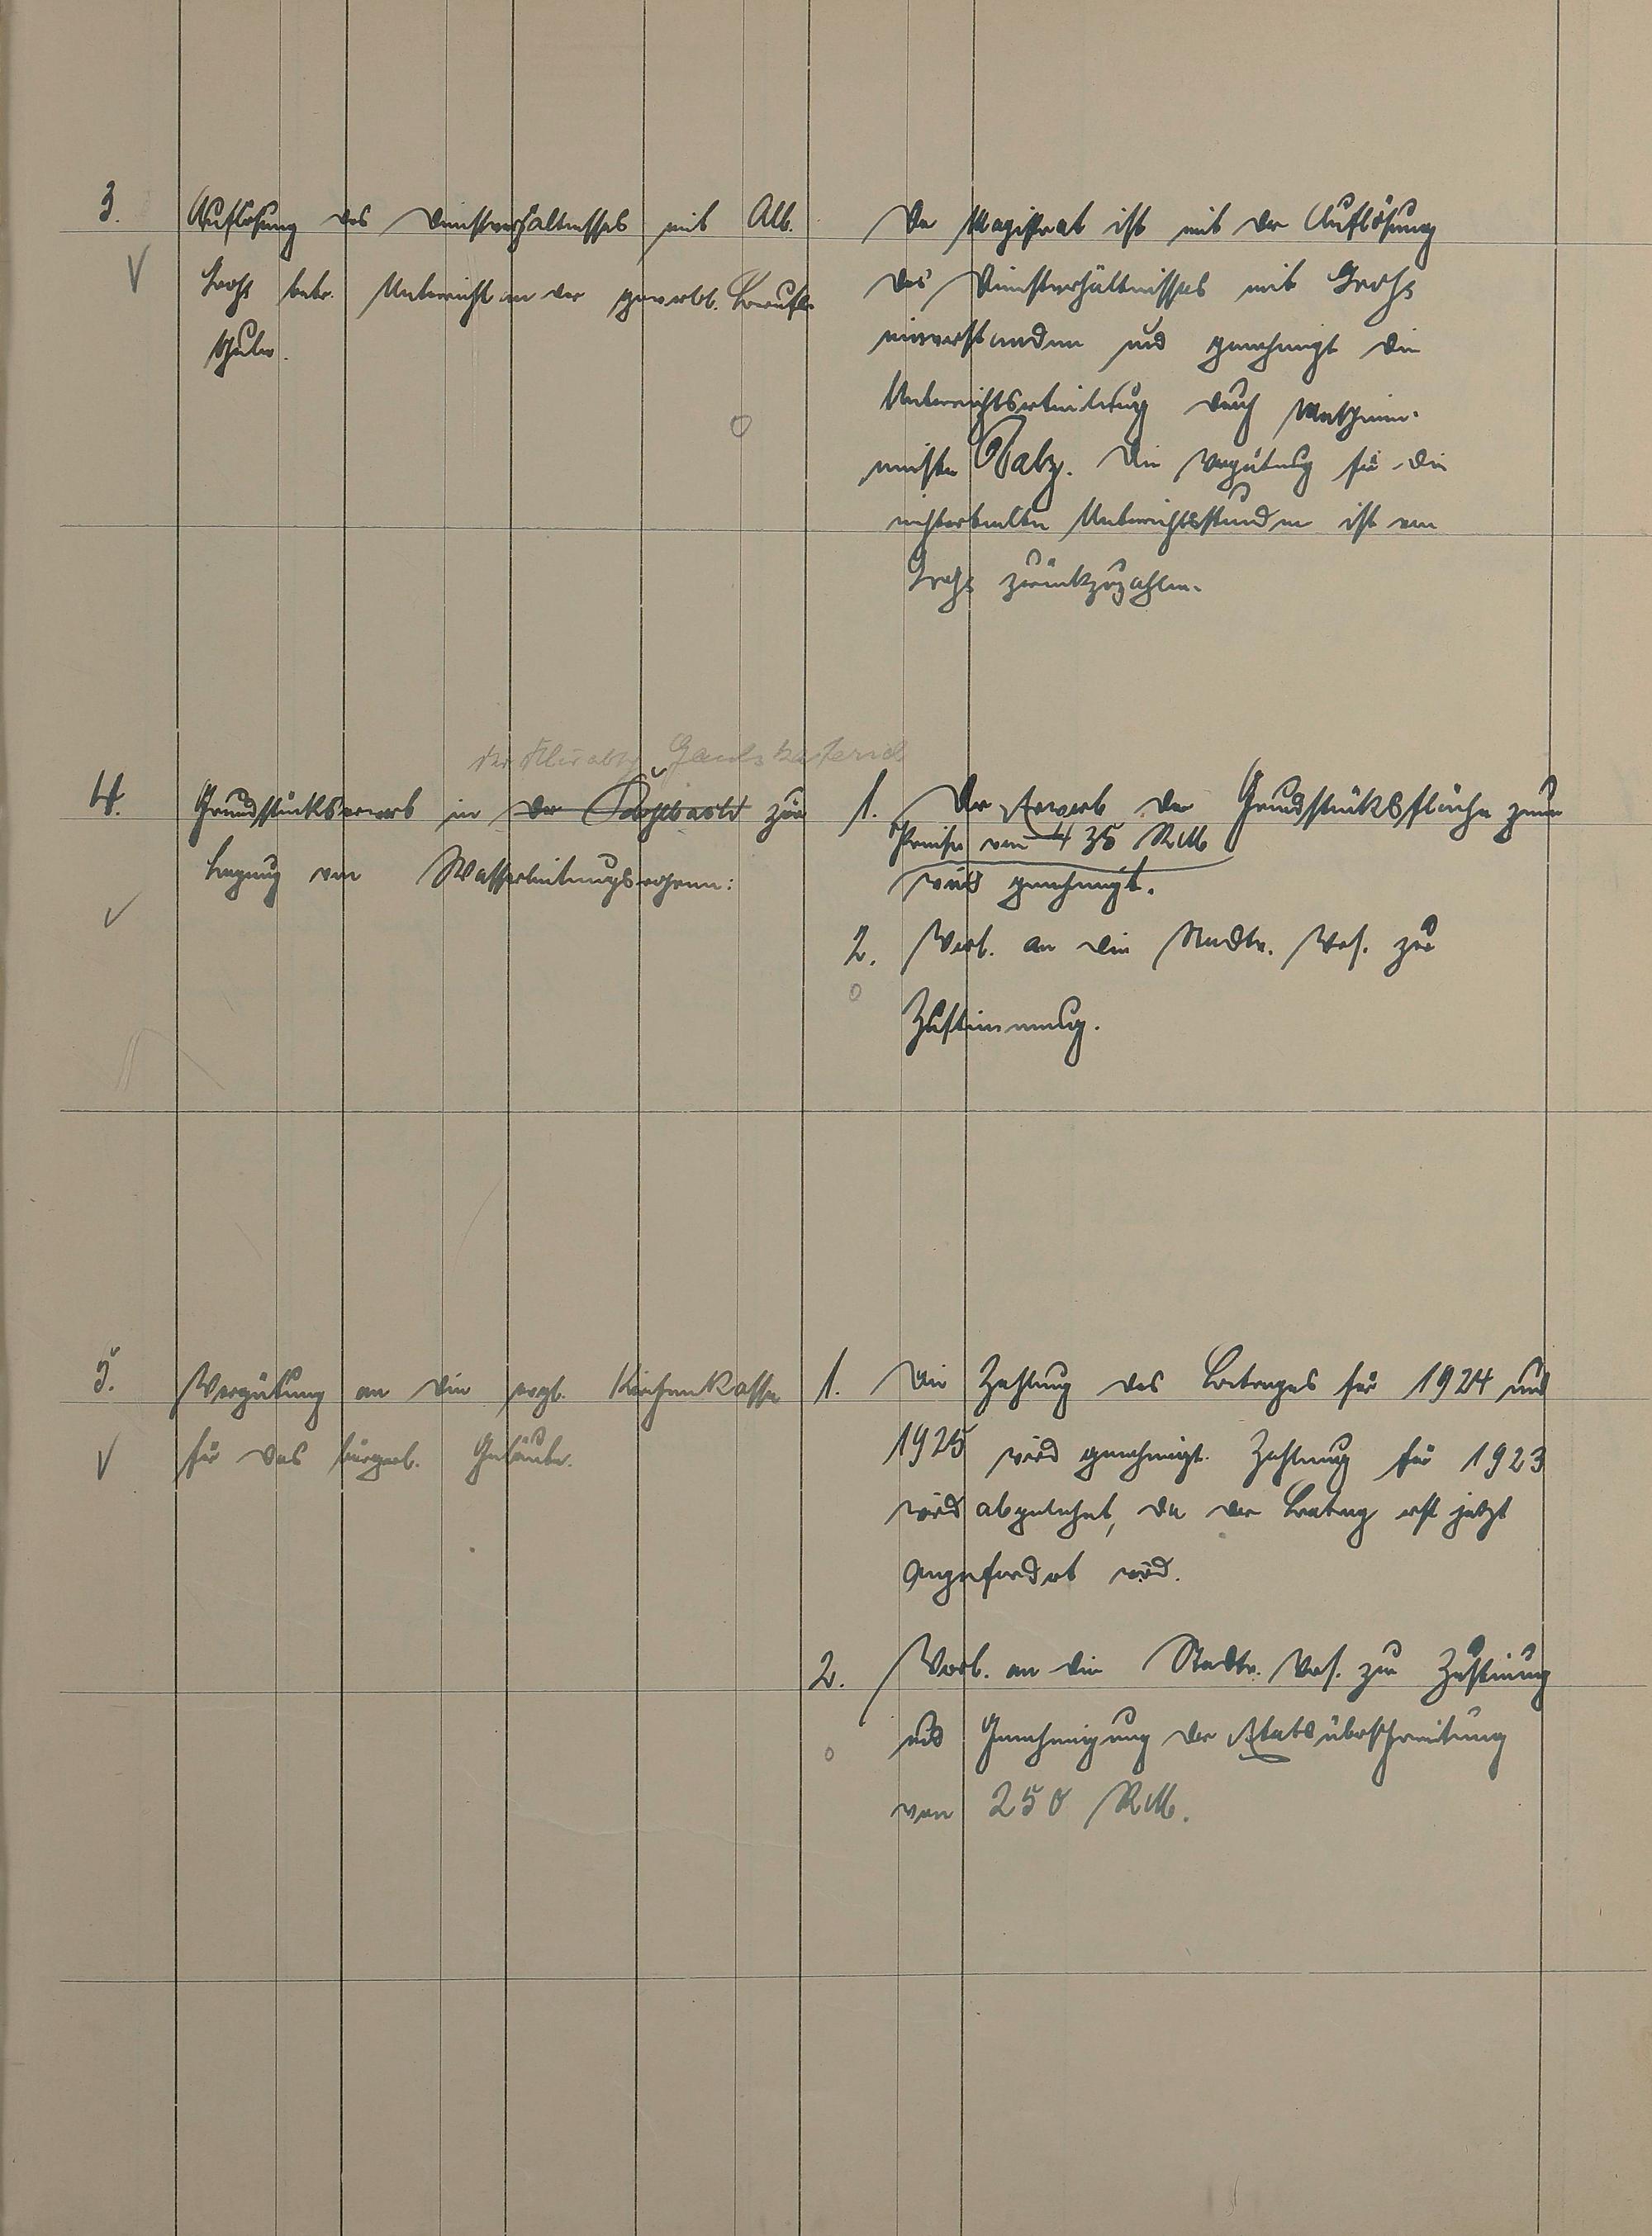 3.
Auflösung des Dienstverhältnisses mit Alb.
betr. Unterricht an der gewerbl. Berufs-
schule.
Der Magistrat ist mit der Auflösung
des Dienstverhältnisses mit
einverstanden und genehmigt die
Unterrichtserteilung durch
meister Balz. Die Vergütung für die
nichterteilten Unterrichtsstunden ist von
zurückzuzahlen.
4.
der Flurabtg
Grundstückserwerb in der zur
Legung von Wasserleitungsrohren:
1. Der Erwerb der Grundstücksfläche zum
Preise von 435 RM
wird genehmigt.
2. Vorl. an die Stadtv. Vers. zur
Zustimmung.
5.
Vergütung an die evgl. Kirchenkasse
für das bürgerl. Geläute.
1. Die Zahlung des Betrages für 1924 und
1925 wird genehmigt. Zahlung für 1923
wird abgelehnt, da der Betrag erst jetzt
angefordert wird.
2. Vorl. an die Stadtv. Vers. zur Zustimung
und Genehmigung der Etatsüberschreitung
von 250 RM.